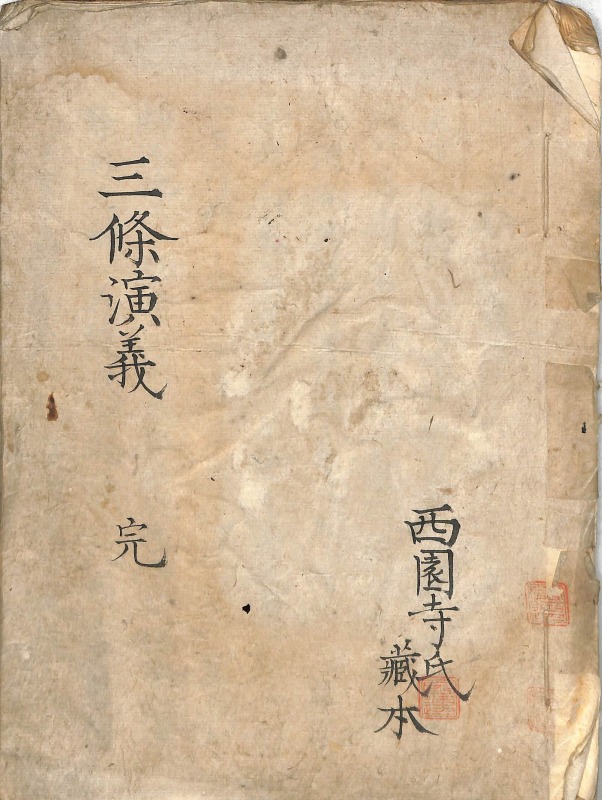 西園寺氏
藏本
三條演義 完